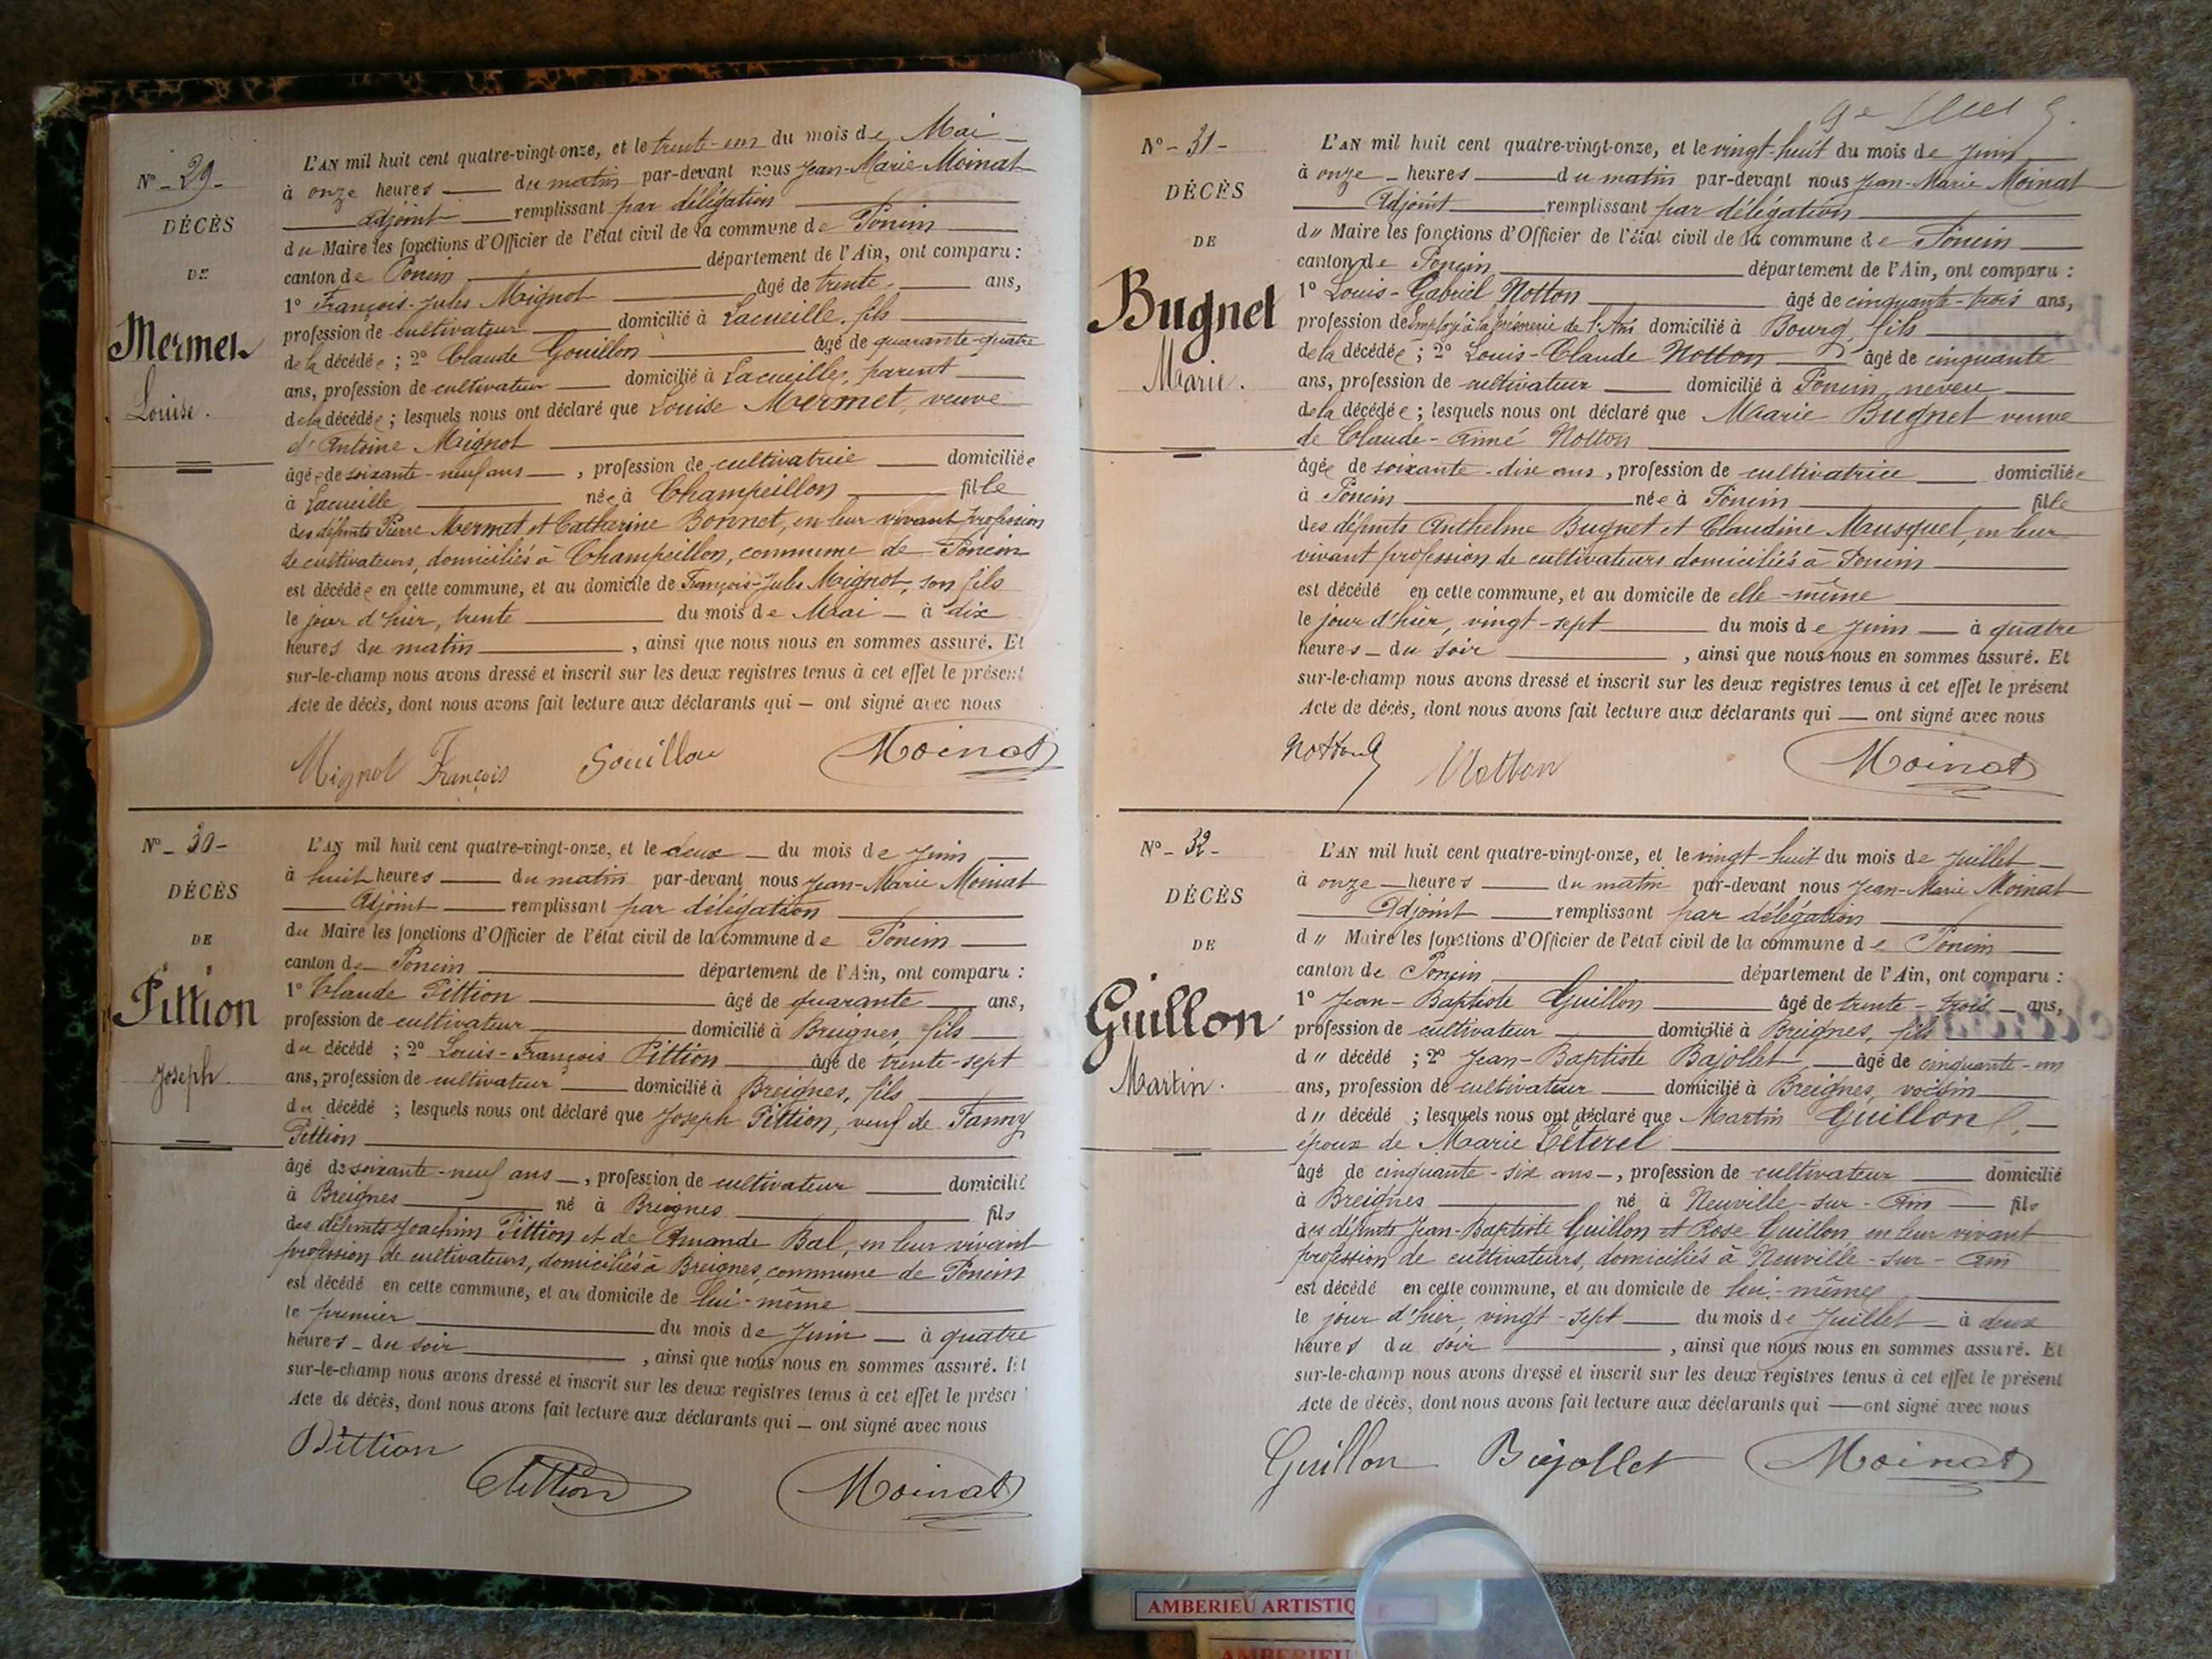 Nº - 29 -
DÉCÈS
DE
Mermet
Louise.
L'AN mil huit cent quatre-vingt-onze, et le trente-un du mois de Mai
à onze heures du matin par-devant nous Jean-Marie Moinat
adjoint remplissant par délégation
du Maire les fonctions d'Officier de l'état civil de la commune de Poncin
canton de Poncin département de l'Ain, ont comparu :
1º François-Jules Mignot âgé de trente ans,
profession de cultivateur domicilié à Lacueille, fils
de la décédée ; 2º Claude Gouillon âgé de quarante-quatre
ans, profession de cultivateur domicilié à Lacueille, parent
de la décédée ; lesquels nous ont déclaré que Louise Mermet, veuve
d'Antoine Mignot
âgée de soixante-neuf ans, profession de cultivatrice domiciliée
à Lacueille née à Champeillon fille
des défunts Pierre Mermet et Catherine Bonnet, en leur vivant profession
de cultivateurs, domiciliés à Champeillon, commune de Poncin
est décédée en cette commune, et au domicile de François-Jules Mignot, son fils
le jour d'hier, trente du mois de Mai à dix
heures du matin, ainsi que nous nous en sommes assuré. Et
sur-le-champ nous avons dressé et inscrit sur les deux registres tenus à cet effet le présent
Acte de décès, dont nous avons fait lecture aux déclarants qui — ont signé avec nous
Mignot François Gouillon Moinat
Nº - 30 -
DÉCÈS
DE
Pittion
Joseph
L'AN mil huit cent quatre-vingt-onze, et le deux du mois de Juin
à huit heures du matin par-devant nous Jean-Marie Moinat
Adjoint remplissant par délégation
du Maire les fonctions d'Officier de l'état civil de la commune de Poncin
canton de Poncin département de l'Ain, ont comparu :
1º Claude Pittion âgé de quarante ans,
profession de cultivateur domicilié à Breignes, fils
du décédé ; 2º Louis-François Pittion âgé de trente-sept
ans, profession de cultivateur domicilié à Breignes, fils
du décédé ; lesquels nous ont déclaré que Joseph Pittion, veuf de Fanny
Pittion
âgé de soixante-neuf ans, profession de cultivateur domicilié
à Breignes né à Breignes fils
des défunts Joachim Pittion et de Amande Bal, en leur vivant
profession de cultivateurs, domiciliés à Breignes, commune de Poncin
est décédé en cette commune, et au domicile de lui-même
le premier du mois de Juin à quatre
heures du soir, ainsi que nous nous en sommes assuré. Et
sur-le-champ nous avons dressé et inscrit sur les deux registres tenus à cet effet le présent
Acte de décès, dont nous avons fait lecture aux déclarants qui — ont signé avec nous
Pittion
Pittion Moinat
Nº - 31 -
DÉCÈS
DE
Bugnet
Marie.
L'AN mil huit cent quatre-vingt-onze, et le vingt-huit du mois de Juin
à onze heures du matin par-devant nous Jean-Marie Moinat
Adjoint remplissant par délégation
d" Maire les fonctions d'Officier de l'état civil de la commune de Poncin
canton de Poncin département de l'Ain, ont comparu :
1º Louis-Gabriel Notton âgé de cinquante-trois ans,
profession de Employé à la trésorerie de l'Ain domicilié à Bourg, fils
de la décédée ; 2º Louis-Claude Notton âgé de cinquante
ans, profession de cultivateur domicilié à Poncin, neveu
de la décédée ; lesquels nous ont déclaré que Marie Bugnet veuve
de Claude-Aimé Notton
âgée de soixante-dix ans, profession de cultivatrice domiciliée
à Poncin née à Poncin fille
des défunts Anthelme Bugnet et Claudine Mausquel, en leur
vivant profession de cultivateurs domiciliés à Poncin
est décédé en cette commune, et au domicile de elle-même
le jour d'hier, vingt-sept du mois de Juin à quatre
heures du soir, ainsi que nous nous en sommes assuré. Et
sur-le-champ nous avons dressé et inscrit sur les deux registres tenus à cet effet le présent
Acte de décès, dont nous avons fait lecture aux déclarants qui — ont signé avec nous
Notton Notton Moinat
Nº - 32 -
DÉCÈS
DE
Guillon
Martin.
L'AN mil huit cent quatre-vingt-onze, et le vingt-huit du mois de Juillet
à onze heures du matin par-devant nous Jean-Marie Moinat
Adjoint remplissant par délégation
d" Maire les fonctions d'Officier de l'état civil de la commune de Poncin
canton de Poncin département de l'Ain, ont comparu :
1º Jean-Baptiste Guillon âgé de trente-trois ans,
profession de cultivateur domicilié à Breignes, fils
d" décédé ; 2º Jean-Baptiste Bajollet âgé de cinquante-un
ans, profession de cultivateur domicilié à Breignes, voisin
d" décédé ; lesquels nous ont déclaré que Martin Guillon
époux de Marie Téterel
âgé de cinquante-six ans, profession de cultivateur domicilié
à Breignes né à Neuville-sur-Ain fils
des défunts Jean-Baptiste Guillon et Rose Guillon, en leur vivant
profession de cultivateurs, domiciliés à Neuville-sur-Ain
est décédé en cette commune, et au domicile de lui-même
le jour d'hier, vingt-sept du mois de Juillet à deux
heures du soir, ainsi que nous nous en sommes assuré. Et
sur-le-champ nous avons dressé et inscrit sur les deux registres tenus à cet effet le présent
Acte de décès, dont nous avons fait lecture aux déclarants qui — ont signé avec nous
Guillon Bajollet Moinat
AMBERIEU ARTISTIQ E
AMBERIEU